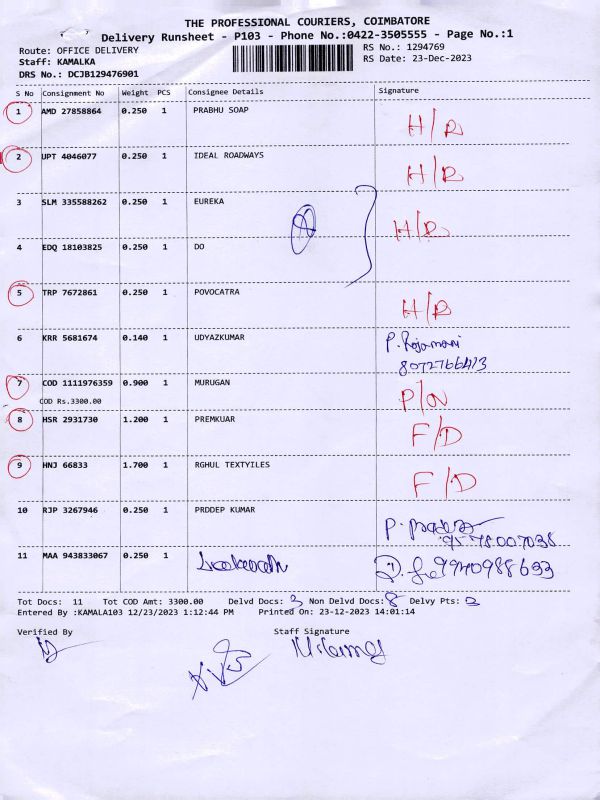 THE PROFESSIONAL COURIERS, COIMBATORE
Delivery Runsheet - P103 - Phone No.:0422-3505555 - Page No.:1
Route: OFFICE DELIVERY RS No.: 1294769
Staff: KAMALKA RS Date: 23-Dec-2023
DRS No.: DCJB129476901
S No Consignment No Weight PCS Consignee Details Signature
1 AMD 27858864 0.250 1 PRABHU SOAP H/R
2 UPT 4046077 0.250 1 IDEAL ROADWAYS H/R
3 SLM 335588262 0.250 1 EUREKA H/R
4 EDQ 18103825 0.250 1 DO
5 TRP 7672861 0.250 1 POVOCATRA H/R
6 KRR 5681674 0.140 1 UDYAZKUMAR P. Rojamani
8072766413
7 COD 1111976359 0.900 1 MURUGAN P/N
COD Rs.3300.00
8 HSR 2931730 1.200 1 PREMKUAR F/D
9 HNJ 66833 1.700 1 RGHUL TEXTYILES F/D
10 RJP 3267946 0.250 1 PRDDEP KUMAR
9578007038
11 MAA 943833067 0.250 1 9940988633
Tot Docs: 11 Tot COD Amt: 3300.00 Delvd Docs: 3 Non Delvd Docs: 8 Delvy Pts: 3
Entered By :KAMALA103 12/23/2023 1:12:44 PM Printed On: 23-12-2023 14:01:14
Verified By Staff Signature